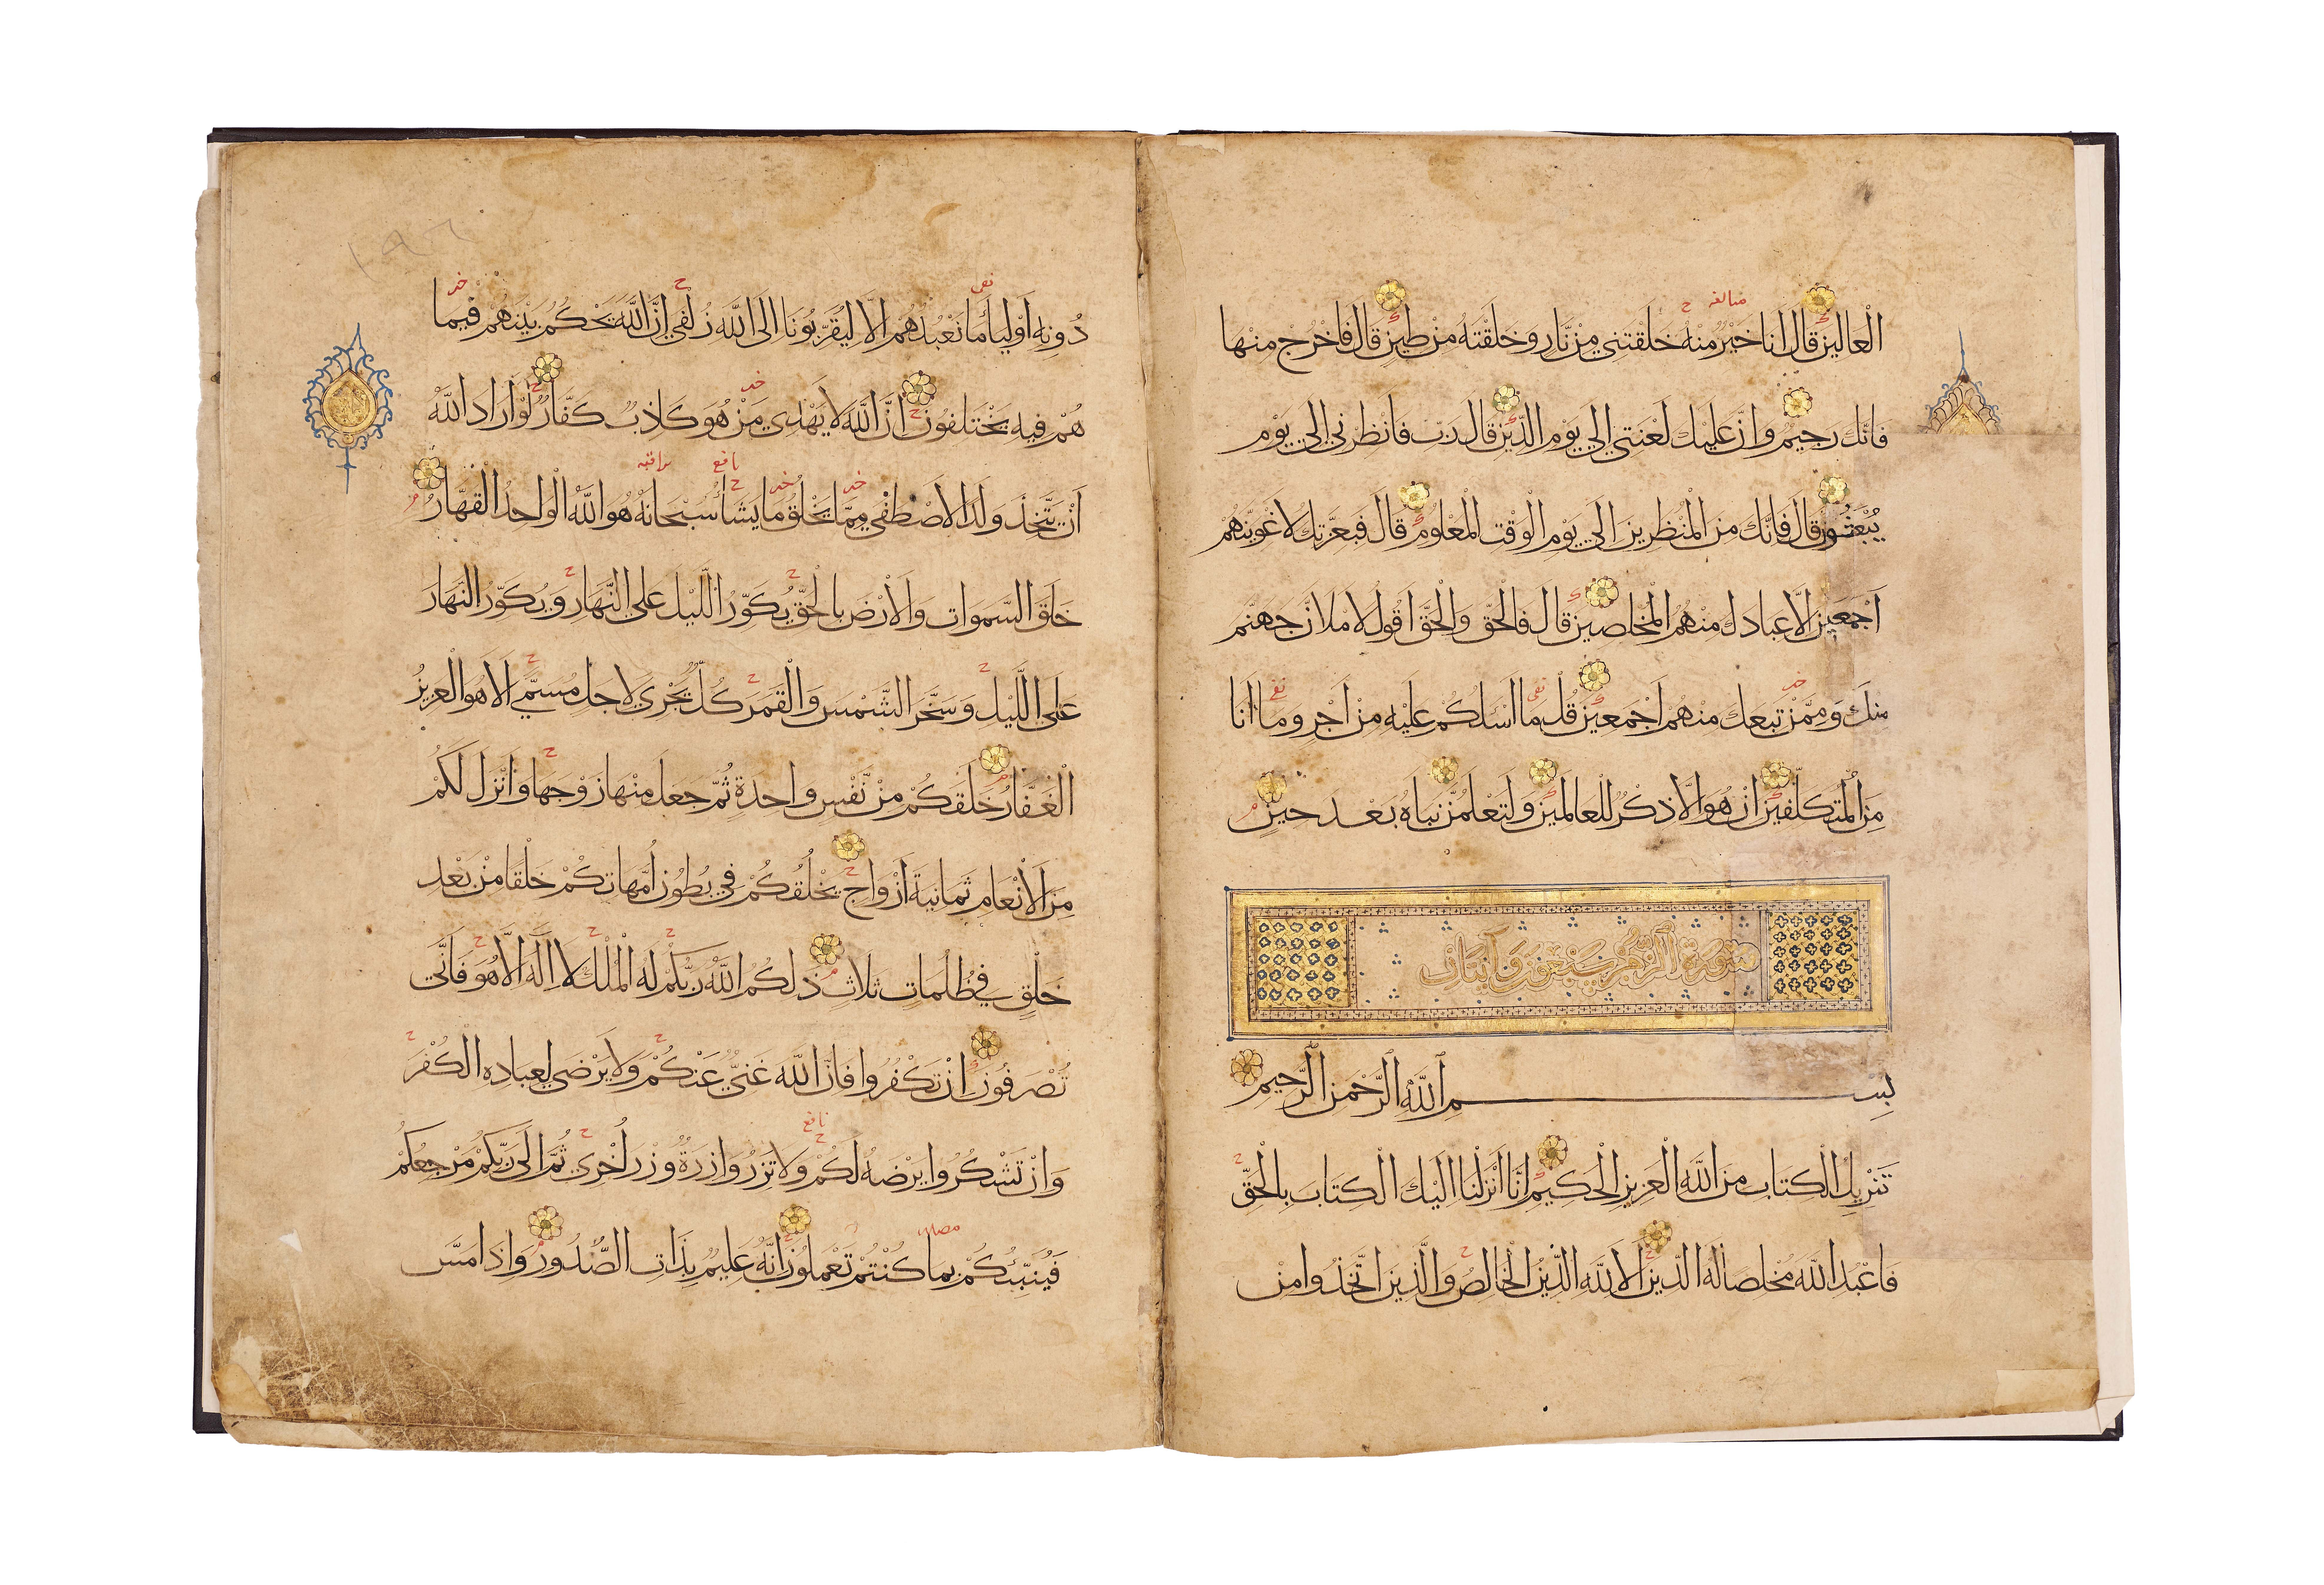 الْعَالِينَ قَالَ أَنَا خَيْرٌ مِنْهُ خَلَقْتَنِي مِنْ نَارٍ وَخَلَقْتَهُ مِنْ طِينٍ قَالَ فَاخْرُجْ مِنْهَا
فَإِنَّكَ رَجِيمٌ وَإِنَّ عَلَيْكَ لَعْنَتِي إِلَى يَوْمِ الدِّينِ قَالَ رَبِّ فَأَنْظِرْنِي إِلَى يَوْمِ
يُبْعَثُونَ قَالَ فَإِنَّكَ مِنَ الْمُنْظَرِينَ إِلَى يَوْمِ الْوَقْتِ الْمَعْلُومِ قَالَ فَبِعِزَّتِكَ لَأُغْوِيَنَّهُمْ
أَجْمَعِينَ إِلَّا عِبَادَكَ مِنْهُمُ الْمُخْلَصِينَ قَالَ فَالْحَقَّ وَالْحَقَّ أَقُولُ لَأَمْلَأَنَّ جَهَنَّمَ
مِنْكَ وَمِمَّنْ تَبِعَكَ مِنْهُمْ أَجْمَعِينَ قُلْ مَا أَسْأَلُكُمْ عَلَيْهِ مِنْ أَجْرٍ وَمَا أَنَا
مِنَ الْمُتَكَلِّفِينَ إِنْ هُوَ إِلَّا ذِكْرٌ لِلْعَالَمِينَ وَلَتَعْلَمُنَّ نَبَأَهُ بَعْدَ حِينٍ
سورة الزمر سبعون وآيتان
بِسْمِ اللَّهِ الرَّحْمَنِ الرَّحِيمِ
تَنْزِيلُ الْكِتَابِ مِنَ اللَّهِ الْعَزِيزِ الْحَكِيمِ إِنَّا أَنْزَلْنَا إِلَيْكَ الْكِتَابَ بِالْحَقِّ
فَاعْبُدِ اللَّهَ مُخْلِصًا لَهُ الدِّينَ أَلَا لِلَّهِ الدِّينُ الْخَالِصُ وَالَّذِينَ اتَّخَذُوا مِنْ
١٩٦
دُونِهِ أَوْلِيَاءَ مَا نَعْبُدُهُمْ إِلَّا لِيُقَرِّبُونَا إِلَى اللَّهِ زُلْفَى إِنَّ اللَّهَ يَحْكُمُ بَيْنَهُمْ فِيمَا
هُمْ فِيهِ يَخْتَلِفُونَ إِنَّ اللَّهَ لَا يَهْدِي مَنْ هُوَ كَاذِبٌ كَفَّارٌ لَوْ أَرَادَ اللَّهُ
أَنْ يَتَّخِذَ وَلَدًا لَاصْطَفَى مِمَّا يَخْلُقُ مَا يَشَاءُ سُبْحَانَهُ هُوَ اللَّهُ الْوَاحِدُ الْقَهَّارُ
خَلَقَ السَّمَوَاتِ وَالْأَرْضَ بِالْحَقِّ يُكَوِّرُ اللَّيْلَ عَلَى النَّهَارِ وَيُكَوِّرُ النَّهَارَ
عَلَى اللَّيْلِ وَسَخَّرَ الشَّمْسَ وَالْقَمَرَ كُلٌّ يَجْرِي لِأَجَلٍ مُسَمًّى أَلَا هُوَ الْعَزِيزُ
الْغَفَّارُ خَلَقَكُمْ مِنْ نَفْسٍ وَاحِدَةٍ ثُمَّ جَعَلَ مِنْهَا زَوْجَهَا وَأَنْزَلَ لَكُمْ
مِنَ الْأَنْعَامِ ثَمَانِيَةَ أَزْوَاجٍ يَخْلُقُكُمْ فِي بُطُونِ أُمَّهَاتِكُمْ خَلْقًا مِنْ بَعْدِ
خَلْقٍ فِي ظُلُمَاتٍ ثَلَاثٍ ذَلِكُمُ اللَّهُ رَبُّكُمْ لَهُ الْمُلْكُ لَا إِلَهَ إِلَّا هُوَ فَأَنَّى
تُصْرَفُونَ إِنْ تَكْفُرُوا فَإِنَّ اللَّهَ غَنِيٌّ عَنْكُمْ وَلَا يَرْضَى لِعِبَادِهِ الْكُفْرَ
وَإِنْ تَشْكُرُوا يَرْضَهُ لَكُمْ وَلَا تَزِرُ وَازِرَةٌ وِزْرَ أُخْرَى ثُمَّ إِلَى رَبِّكُمْ مَرْجِعُكُمْ
فَيُنَبِّئُكُمْ بِمَا كُنْتُمْ تَعْمَلُونَ إِنَّهُ عَلِيمٌ بِذَاتِ الصُّدُورِ وَإِذَا مَسَّ